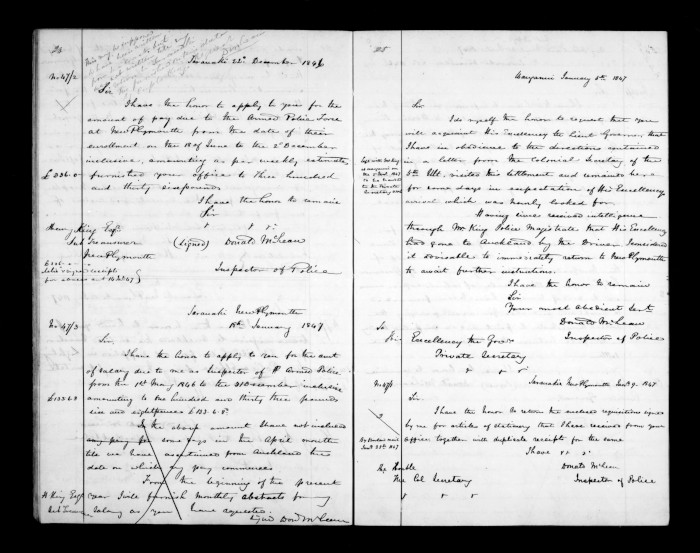 24
No 47/2
Taranaki 22d December 1846
Sir
I have the honor to apply to you for the
amount of pay due to the Armed Police Force
at New Plymouth from the date of their
enrollment on the of June to the 2d December
inclusive, amounting as per weekly estimates
£336.0 furnished your office to Three hundred
and thirty six pounds
I have the honor to remain
Sir
Henry King Esqre
Sub Treasurer
New Plymouth
(signed) Donald McLean
Inspector of Police
receipts
for above
No 47/3
Taranaki New Plymouth
15th January 1847
Sir
I have the honor to apply to you for the amt
of salary due to me as Inspector of Armed Police
from the 1st May 1846 to the 31 December inclusive
£133.6.8 amounting to One hundred and thirty three pounds
six and eightpence £133.6.8.
In the above amount I have not included
any pay for some days in the April month
till we have ascertained from Auckland the
date on which my pay commences
From the beginning of the present
H King Esqr year I will furnish monthly abstracts for my
Sub Treasurer salary as you have requested.
signed Don McLean
25
Wanganui January 5th 1847
Sir
I do myself the honor to request that you
will acquaint His Excellency the Lieut Governor that
I have in obedience to the directions contained
in a letter from the Colonial Secretary of the
5th Ult. visited this settlement and remained here
for some days in expectation of His Excellencys
arrival which was hourly looked for.
Having since received intelligence
through Mr King Police Magistrate that His Excellency
had gone to Auckland by the Driver I considered
it advisable to immediately return to New Plymouth
to await further instructions.
I have the honor to remain
Sir
Your most obedient Servt
Donald McLean
Inspector of Police
To
His Excellency the Govrs
Private Secretary
No 47/1
Taranaki New Plymouth Jany 9. 1847
Sir
I have the honor to return the enclosed requisitions signed
by me for articles of stationery that I have received from your
office together with duplicate receipts for the same
I have
Donald McLean
Inspector of Police
The Honble
The Col Secretary